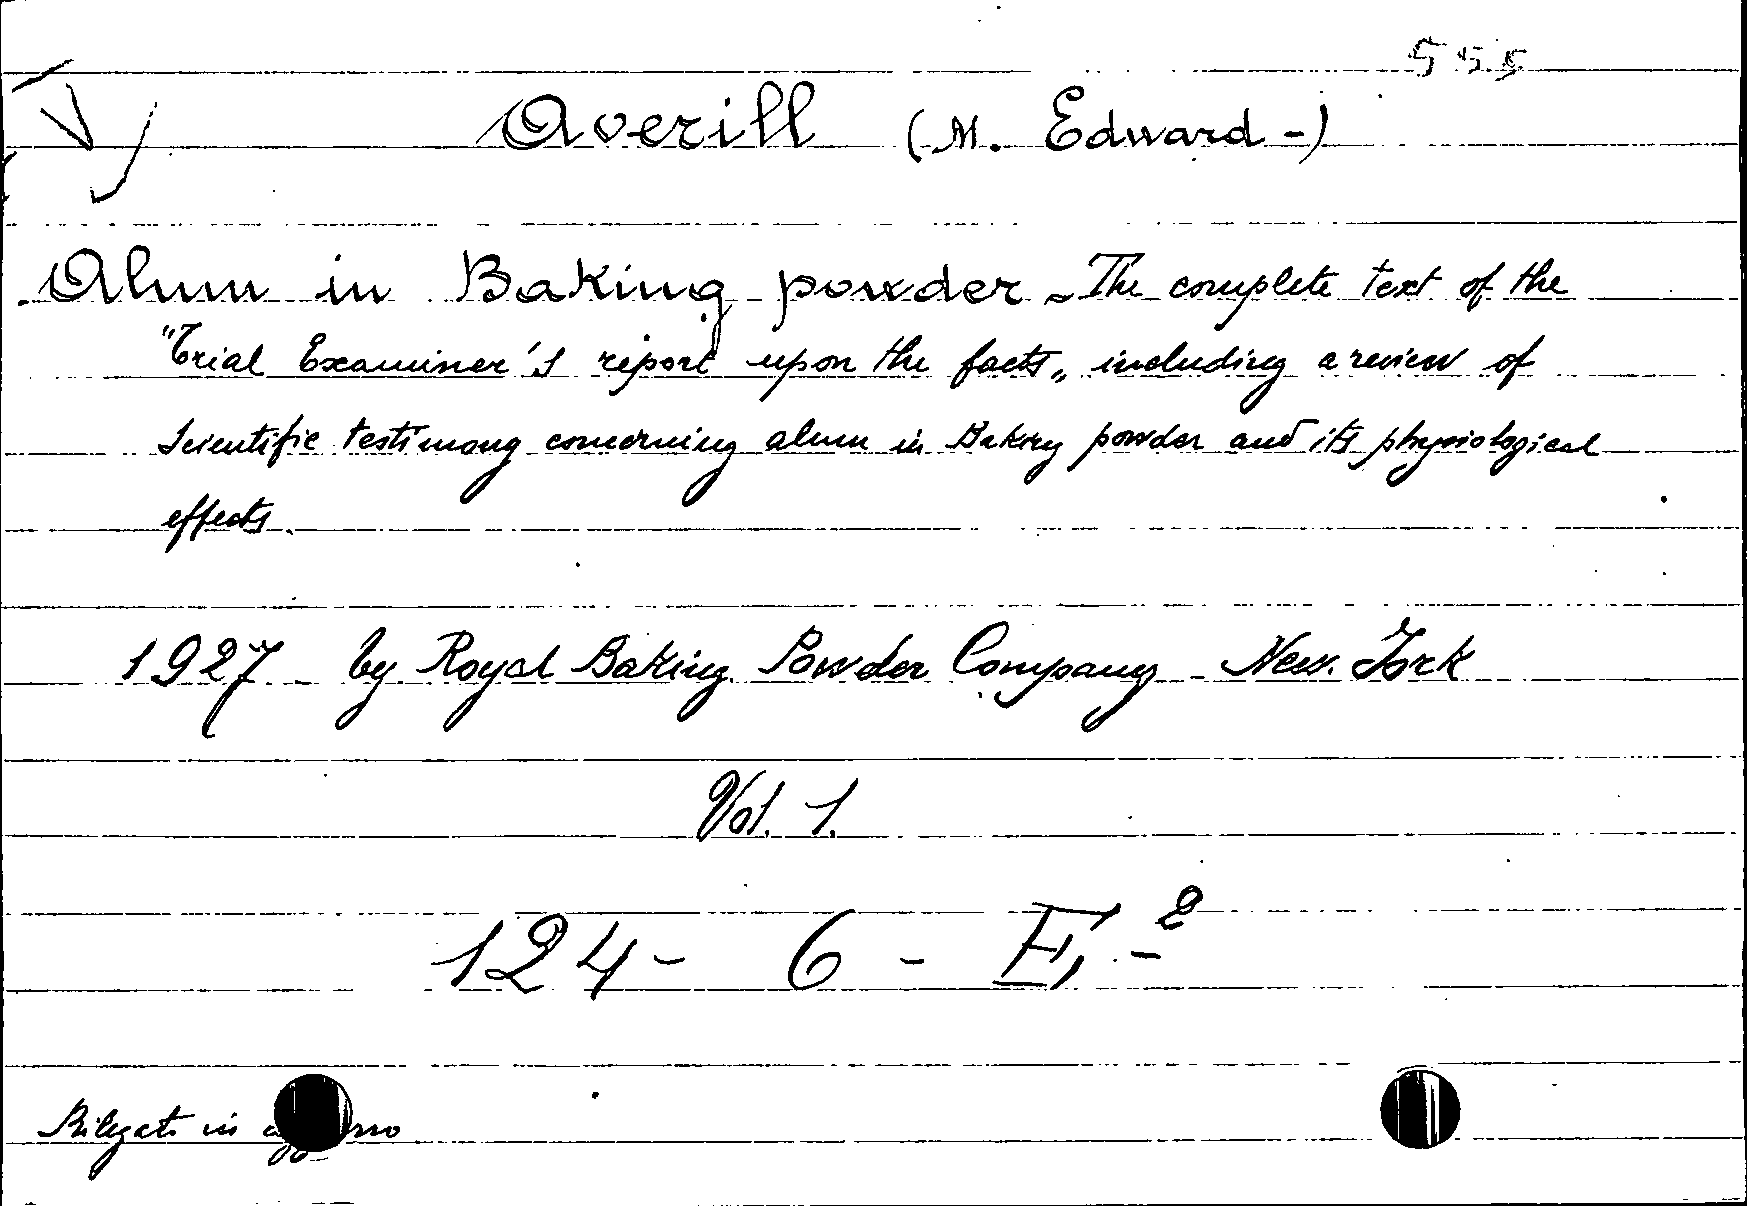 555
Averill (M. Edward-)
Alum in Baking powder - The complete text of the
"Trial Examiner's report upon the facts„ including a review of
Scientific testimony concerning alum in Baking powder and its physiological
effects.
1927 - by Royal Baking Powder Company - New. York
Vol. 1.
124 - 6 - E, - 2
in